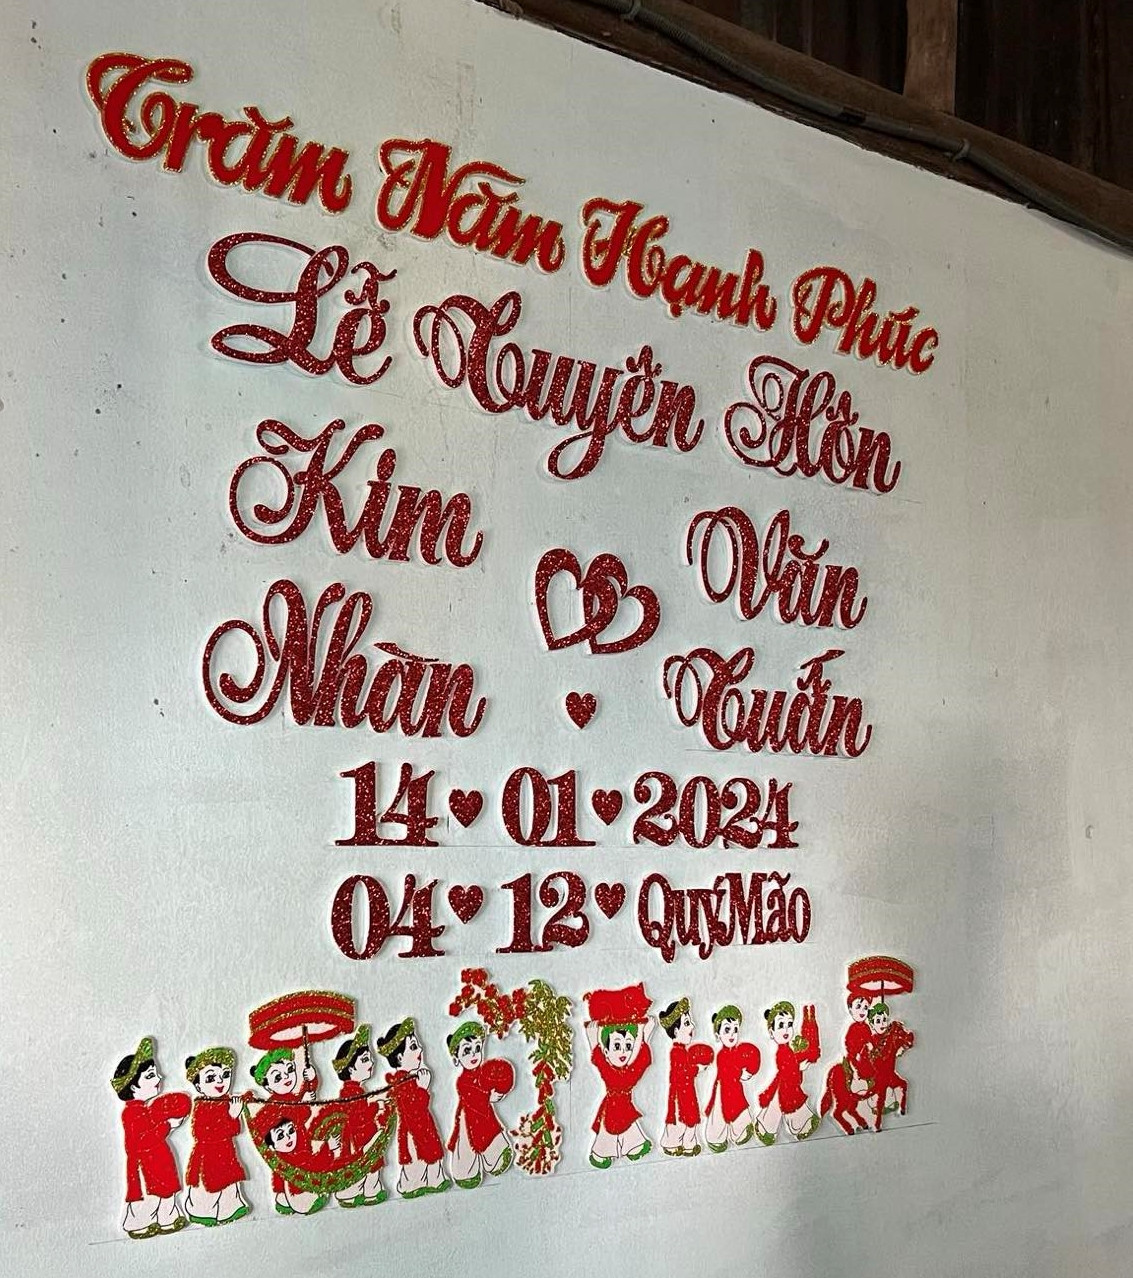 Trăm Năm Hạnh Phúc
Lễ Tuyên Hôn
Kim Nhàn
Văn Tuấn
14 01 2024
04 12 Quý Mão